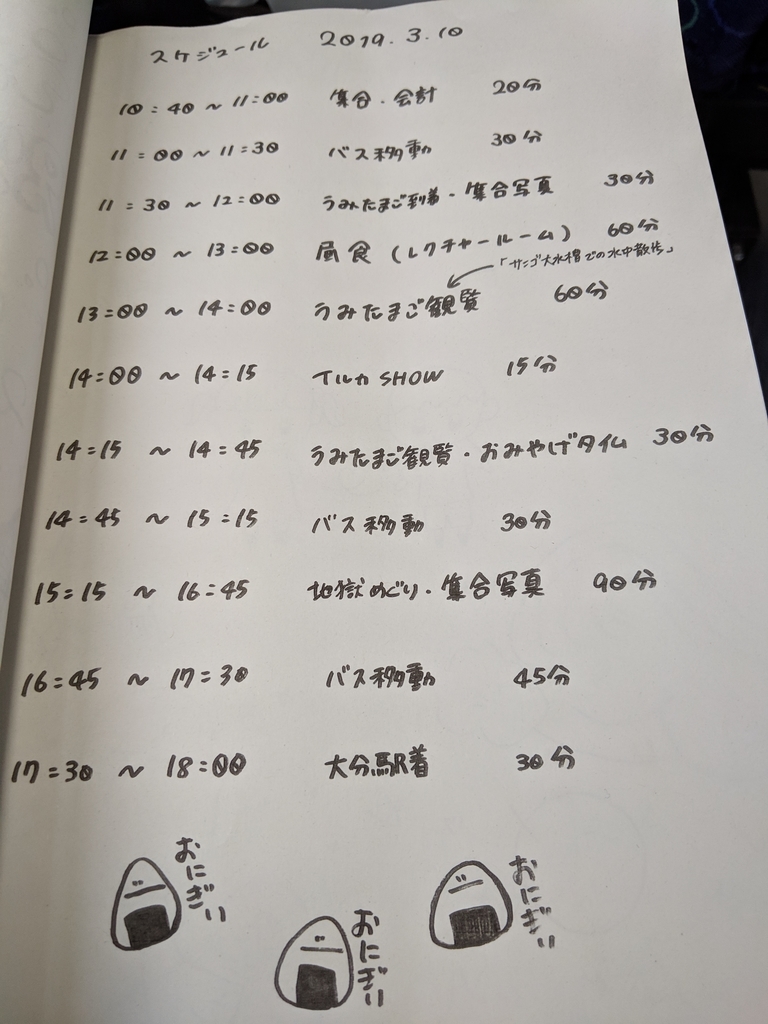 スケジュール 2019.3.10
10:40 ~ 11:00 集合・会計 20分
11:00 ~ 11:30 バス移動 30分
11:30 ~ 12:00 うみたまご到着・集合写真 30分
12:00 ~ 13:00 昼食(レクチャールーム) 60分
「サンゴ大水槽での水中散歩」
13:00 ~ 14:00 うみたまご観覧 60分
14:00 ~ 14:15 イルカSHOW 15分
14:15 ~ 14:45 うみたまご観覧・おみやげタイム 30分
14:45 ~ 15:15 バス移動 30分
15:15 ~ 16:45 地獄めぐり・集合写真 90分
16:45 ~ 17:30 バス移動 45分
17:30 ~ 18:00 大分駅着 30分
おにぎい
おにぎい
おにぎい